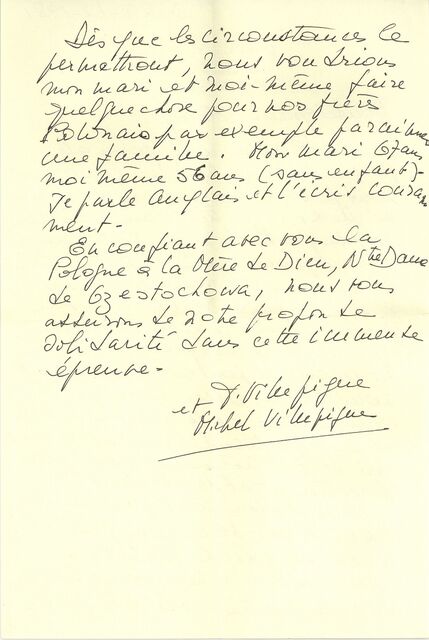 Dès que les circonstances le
permettront, nous voudrions
mon mari et moi-même faire
quelque chose pour nos frères
Polonais par exemple parrainer
une famille. Mon mari 67 ans
moi même 56 ans (sans enfant)-
Je parle Anglais et l'écris couram
ment-
En confiant avec vous la
Pologne à la Mère de Dieu, Ntre Dame
de Czestochowa, nous vous
assurons de notre profonde
solidarité dans cette immense
épreuve-
et J. Villepigue
Michel Villepigue